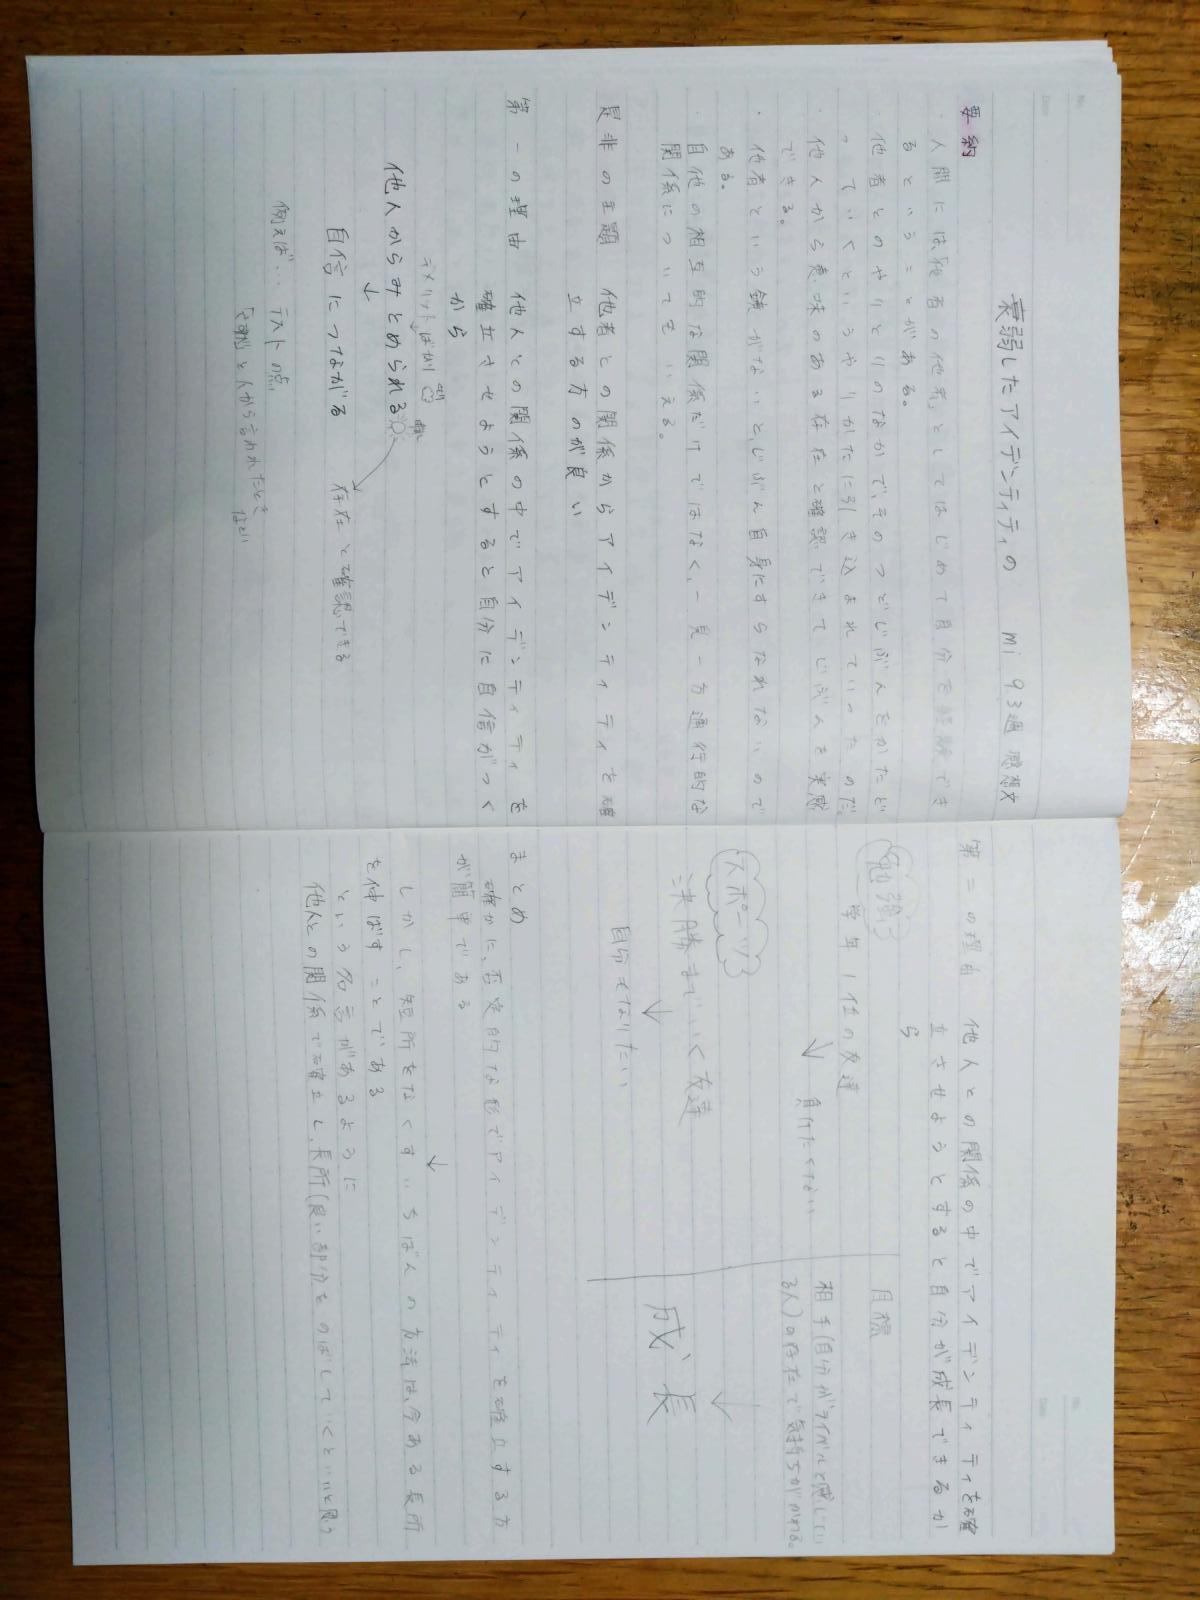 No.
Date
衰弱したアイデンティティの mi 9.3週 感想文
要約
・人間には「他者の他者」としてはじめて自分を経験でき
るということがある。
・他者とのやりとりのなかで、そのつどじぶんをかたど
っていくというやりかたに引き込まれていったのだ。
・他人から意味のある存在と確認できてじぶんを実感
できる。
・他者という鏡がないと、じぶん自身にすらなれないので
ある。
・自他の相互的な関係だけではなく、一見一方通行的な
関係についてもいえる。
是非の主題 他者との関係からアイデンティティを確
立する方のが良い
第一の理由 他人との関係の中でアイデンティティを
確立させようとすると自分に自信がつく
から
デメリットばかり
他人からみとめられる
↓
自信につながる 存在と確認できる
例えば… テストの点
「 」と人から言われたとき
など
No.
Date
第二の理由 他人との関係の中でアイデンティティを確
立させようとすると自分が成長できるか
ら
勉強
学年1位の友達
↓ 負けたくない
スポーツ
決勝までいく友達
↓
自分もなりたい
目標
相手(自分がライバルと感じてい
る人)の存在で気持ちがかわる。
↓
成長
まとめ
確かに、否定的な形でアイデンティティを確立する方
が簡単である
↓
しかし、短所をなくすいちばんの方法は、今ある長所
を伸ばすことである
という名言があるように
他人との関係で確立し、長所(良い部分)をのばしていくといいと思う